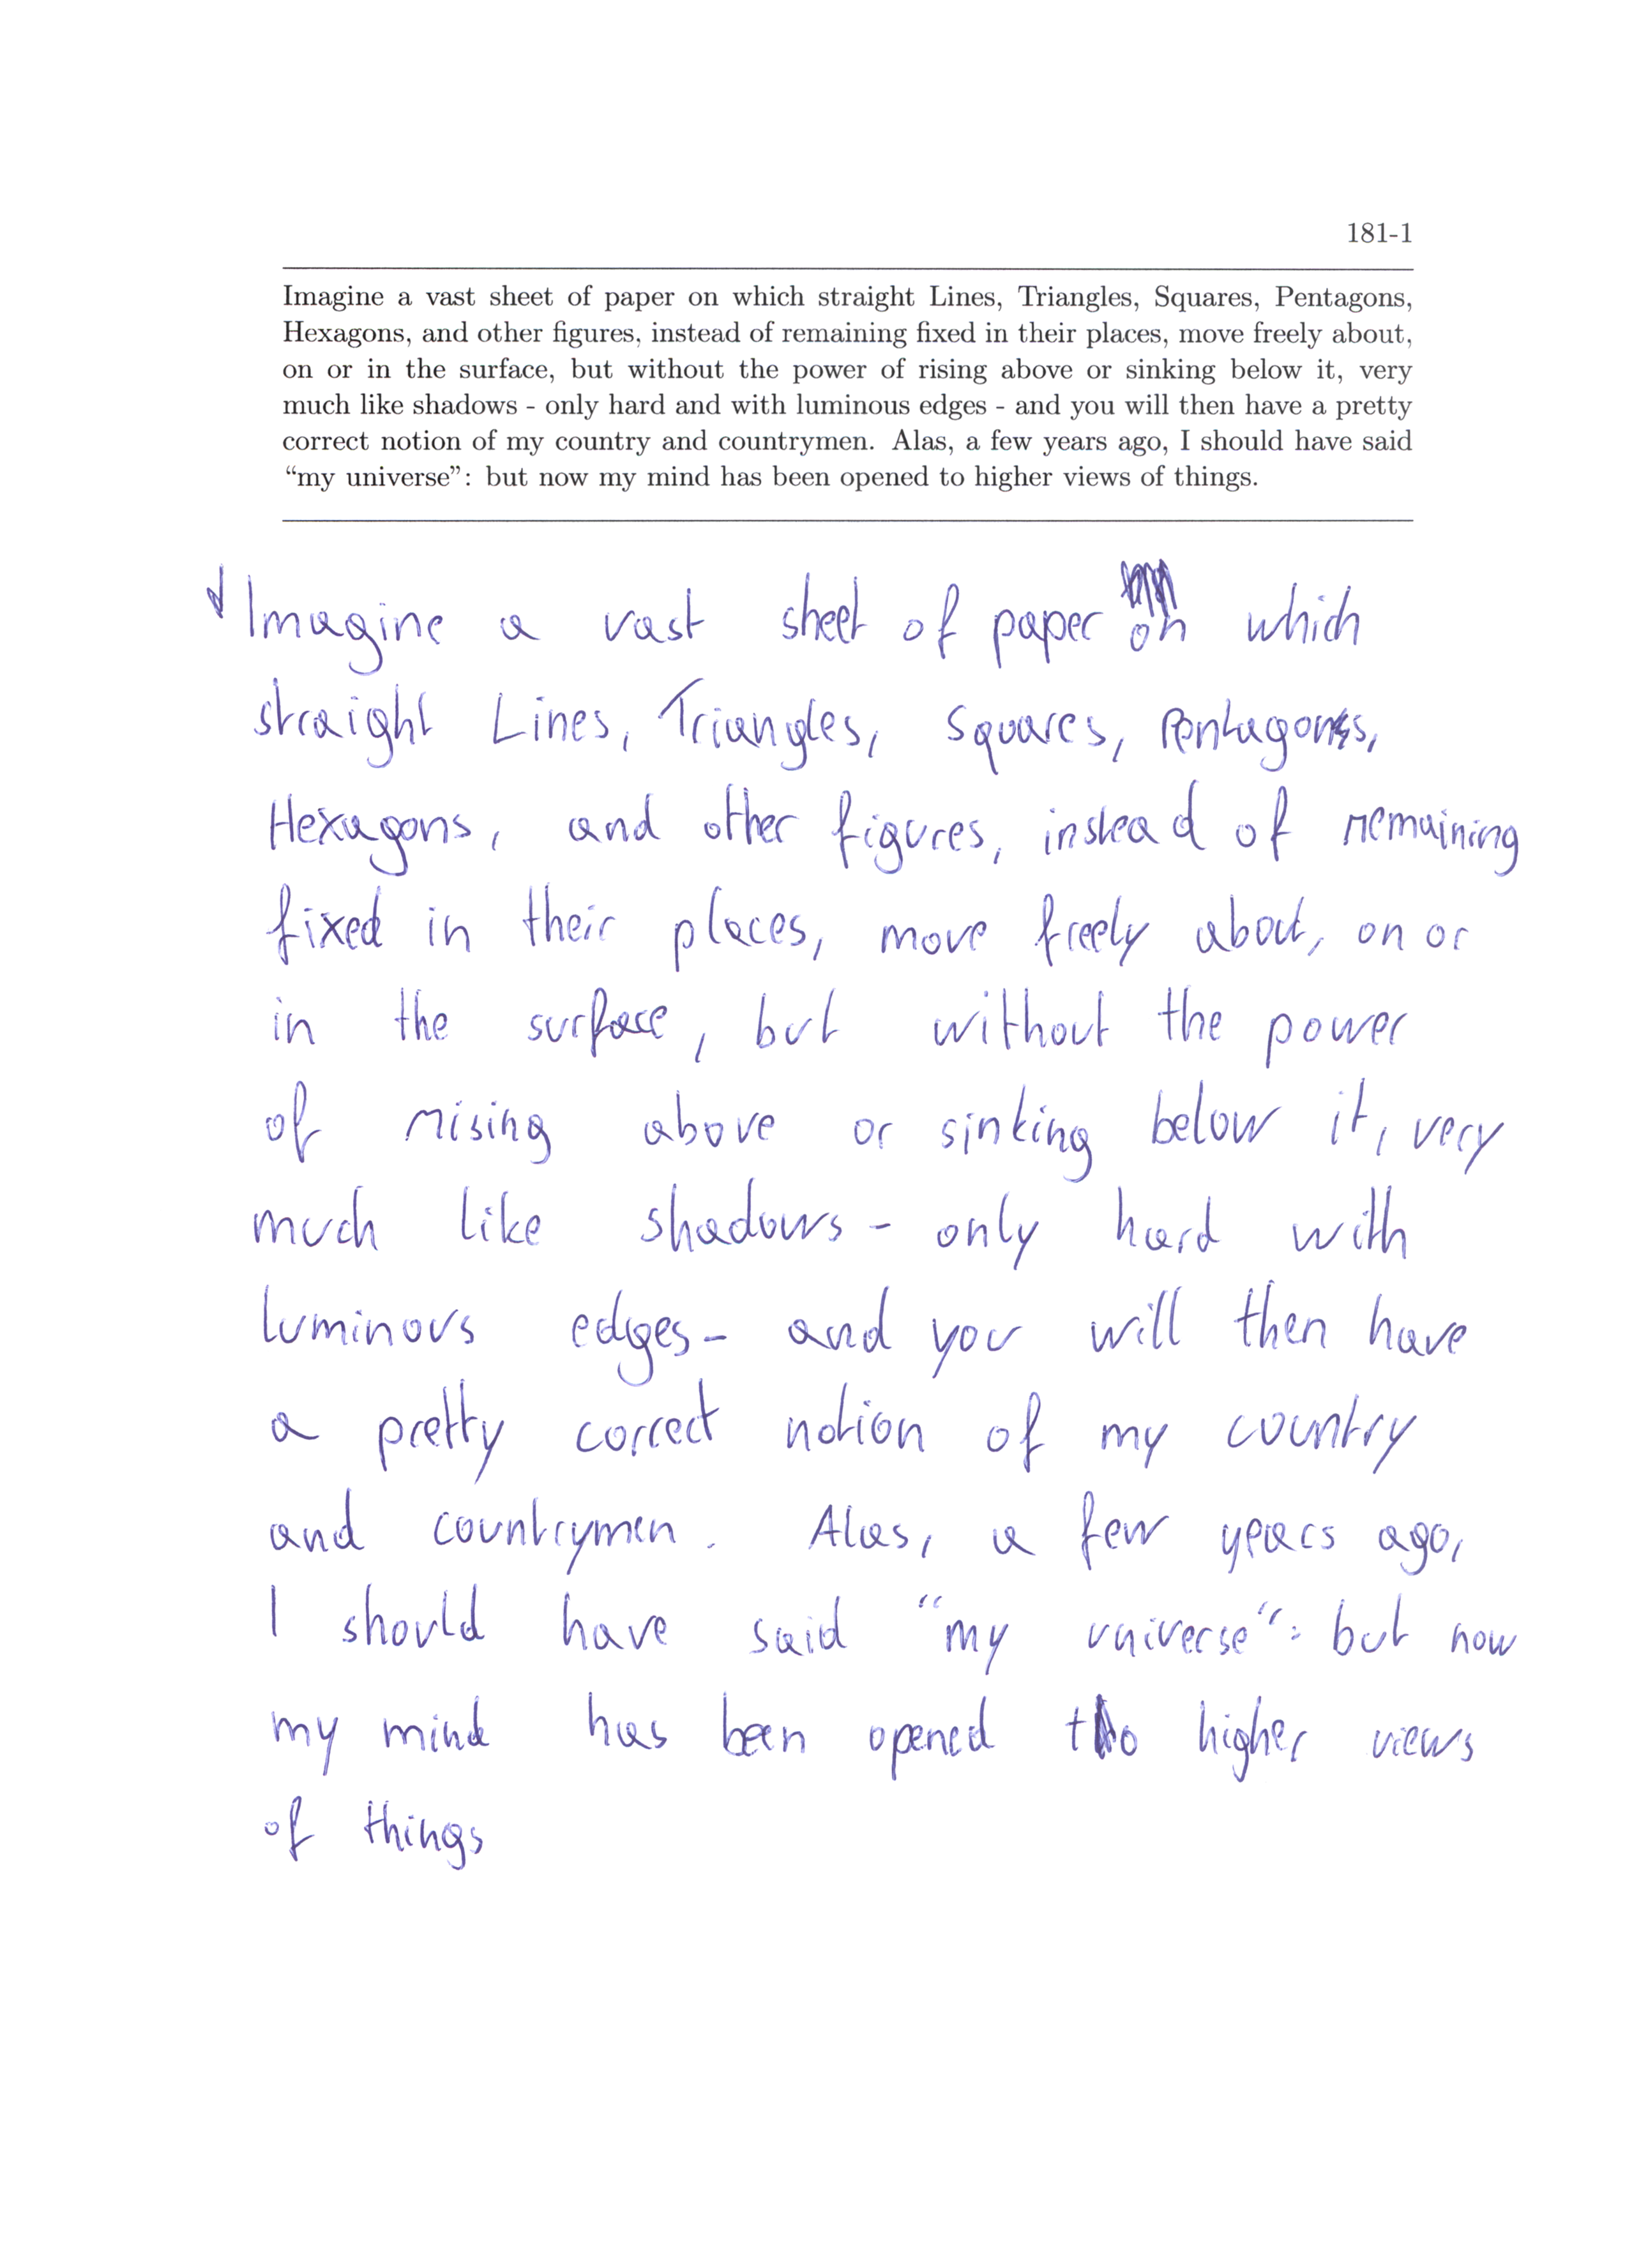 181-1
Imagine a vast sheet of paper on which straight Lines, Triangles, Squares, Pentagons,
Hexagons, and other figures, instead of remaining fixed in their places, move freely about,
on or in the surface, but without the power of rising above or sinking below it, very
much like shadows - only hard and with luminous edges - and you will then have a pretty
correct notion of my country and countrymen. Alas, a few years ago, I should have said
“my universe”: but now my mind has been opened to higher views of things.
Imagine a vast sheet of paper on which
straight Lines, Triangles, Squares, Pentagons,
Hexagons, and other figures, instead of remaining
fixed in their places, move freely about, on or
in the surface, but without the power
of rising above or sinking below it, very
much like shadows - only hard with
luminous edges - and you will then have
a pretty correct notion of my country
and countrymen. Alas, a few years ago,
I should have said “my universe“: but now
my mind has been opened to higher views
of things